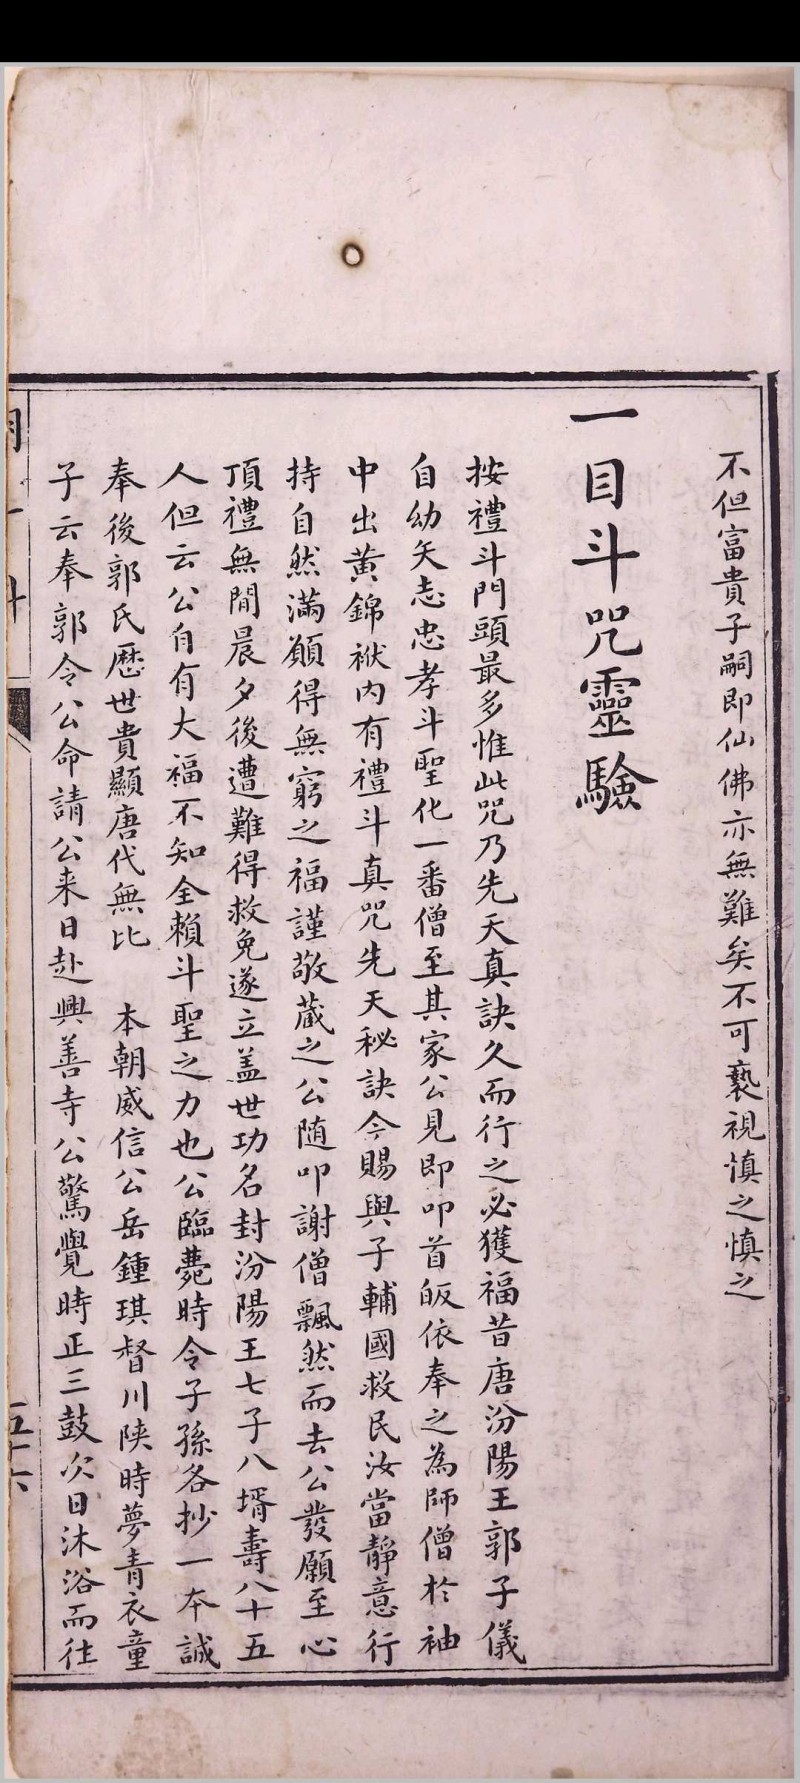 不但富貴子嗣即仙佛亦無難矣不可褻視慎之慎之
一目斗咒靈驗
按禮斗門頭最多惟此咒乃先天真訣久而行之必獲福昔唐汾陽王郭子儀
自幼矢志忠孝斗聖化一番僧至其家公見即叩首皈依奉之為師僧於袖
中出黃錦袱內有禮斗真咒先天秘訣今賜與子輔國救民汝當靜意行
持自然滿願得無窮之福謹敬藏之公随叩謝僧飄然而去公發願至心
頂禮無間晨夕後遭難得救免遂立盖世功名封汾陽王七子八壻壽八十五
人但云公自有大福不知全賴斗聖之力也公臨薨時令子孫各抄一本誠
奉後郭氏歷世貴顯唐代無比 本朝威信公岳鍾琪督川陝時夢青衣童
子云奉郭令公命請公来日赴興善寺公驚覺時正三鼓次日沐浴而往
五十六